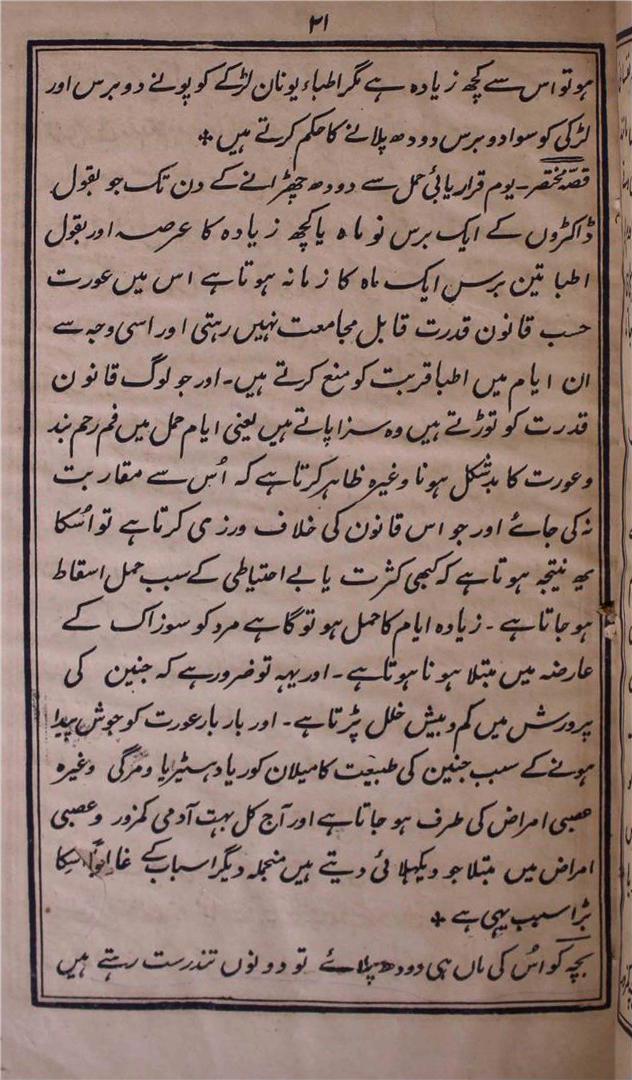 ۲۱
ہو تو اس سے کچھ زیادہ ہے مگر اطباء یونان لڑکے کو پونے دو برس اور
لڑکی کو سوا دو برس دودھ پلانے کا حکم کرتے ہیں *
قصّہ مختصر۔ یوم قرار یابئ حمل سے دودھ چھڑانے کے دن تک جو بقول
ڈاکٹروں کے ایک برس نو ماہ یا کچھ زیادہ کا عرصہ اور بقول
اطبا تین برس ایک ماہ کا زمانہ ہوتا ہے اس میں عورت
حسب قانون قدرت قابل مجامعت نہیں رہتی اور اسی وجہ سے
ان ایام میں اطبا قربت کو منع کرتے ہیں۔ اور جو لوگ قانون
قدرت کو توڑتے ہیں وہ سزا پاتے ہیں یعنی ایام حمل میں فم رحم بند
و عورت کا بدشکل ہونا وغیرہ ظاہر کرتا ہے کہ اُس سے مقاربت
نہ کی جائے اور جو اس قانون کی خلاف ورزی کرتا ہے تو اُسکا
یہ نتیجہ ہوتا ہے کہ کبھی کثرت یا بے احتیاطی کے سبب حمل اسقاط
ہو جاتا ہے۔ زیادہ ایام کا حمل ہو تو گاہے مرد کو سوزاک کے
عارضہ میں مبتلا ہونا ہوتا ہے۔ اور یہہ تو ضرور ہے کہ جنین کی
پرورش میں کم و بیش خلل پڑتا ہے۔ اور بار بار عورت کو جوش پیدا
ہونے کے سبب جنین کی طبیعت کا میلان کوریا و ہسٹیریا و مرگی وغیرہ
عصبی امراض کی طرف ہو جاتا ہے اور آج کل بہت آدمی کمزور و عصبی
امراض میں مبتلا جو دیکھلائی دیتے ہیں منجملہ دیگر اسباب کے اسکا
بڑا سبب یہی ہے *
بچہ کو اُس کی ماں ہی دودھ پلائے تو دونوں تندرست رہتے ہیں